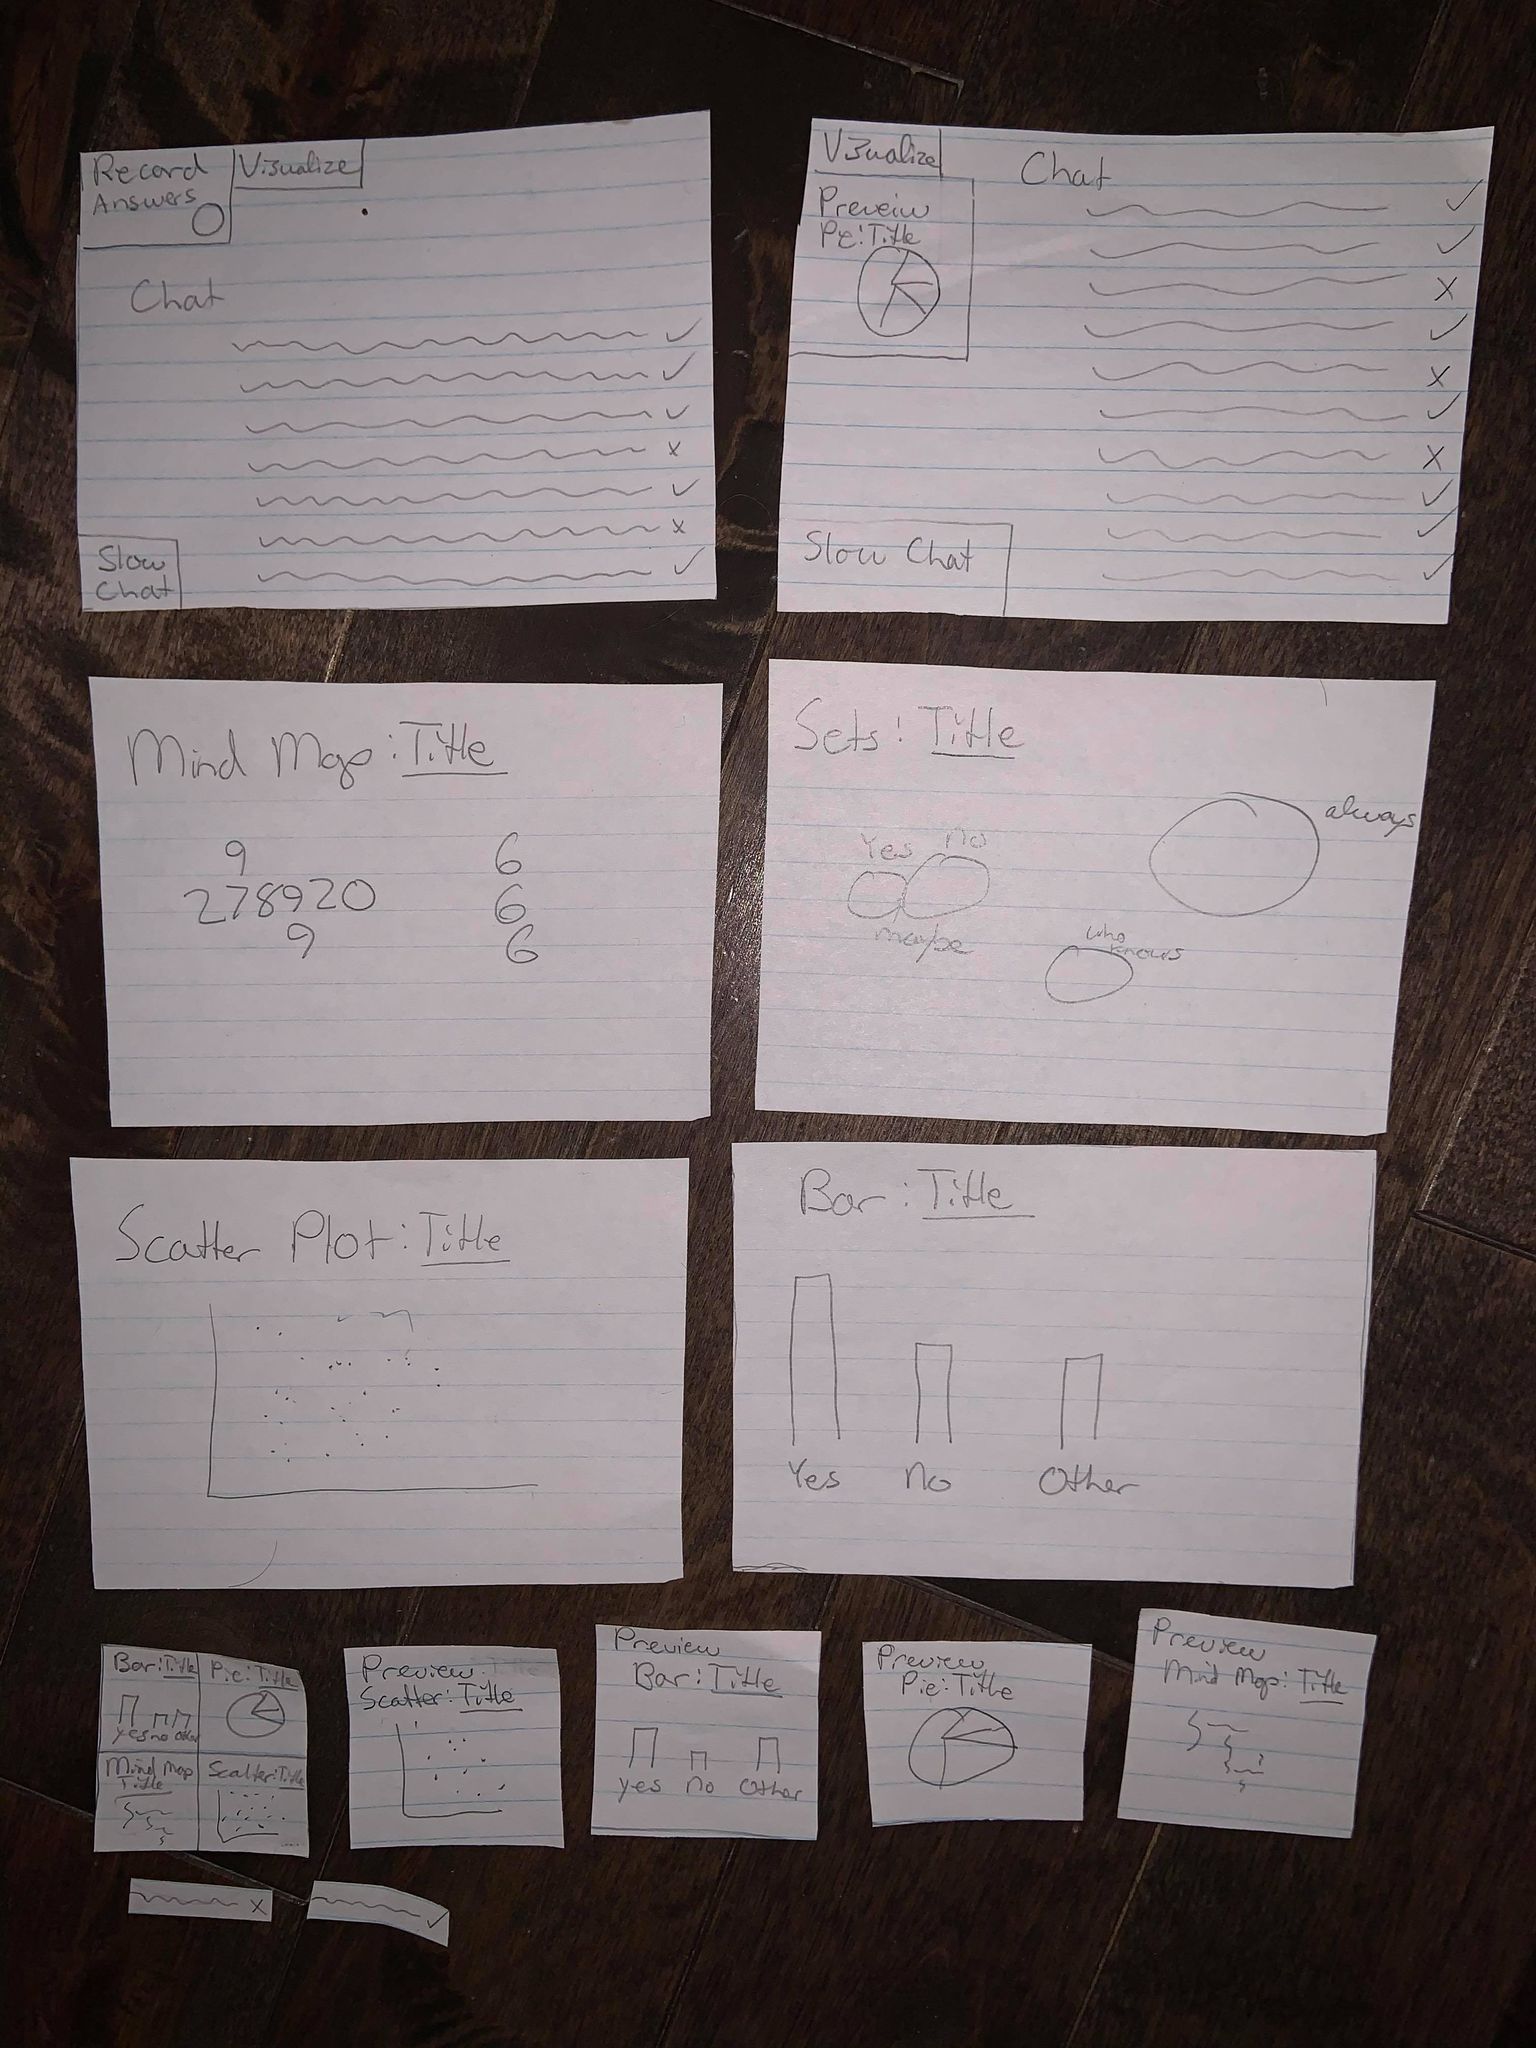 Record
Answers
Visualize
Chat
✓
✓
✓
x
✓
x
✓
Slow
Chat
V3ualize
Preveiw
Pie: Title
Chat
✓
✓
x
✓
x
✓
x
✓
✓
✓
Slow Chat
Mind Map: Title
9
278920
9
6
6
6
Sets: Title
Yes
no
maybe
always
who
knows
Scatter Plot: Title
Bar: Title
Yes
no
Other
Bar: Title
yes no Other
Pie: Title
Mind Map
Title
Scatter: Title
Preview
Scatter: Title
Preview
Bar: Title
yes no Other
Preview
Pie: Title
Preview
Mind Map: Title
x
✓